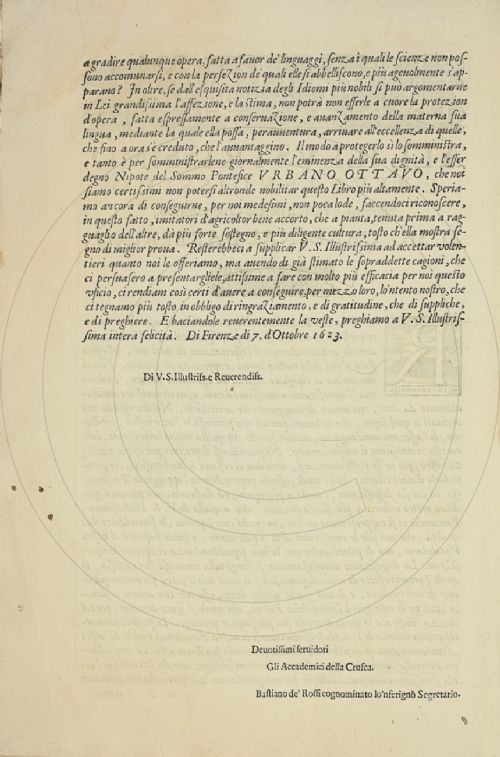 a gradire qualunque opera, fatta a fauor de' linguaggi, senza i quali le scienze non pos-
sono accomunarsi, e con la perfezion de quali elle s'abbelliscono, e più ageuolmente s'ap-
parano? In oltre, se dall'esquisita notizia degli Idiomi più nobili si può argomentarne
in Lei grandissima l'affezione, e la stima, non potrà non esserle a cuore la protezion
d'opera, fatta espressamente a conseruazione, e auanzamento della materna sua
lingua, mediante la quale ella possa, perauuentura, arriuare all'eccellenza di quelle,
che fino a ora s'è creduto, che l'auuantaggino. Il modo a proteggerlo sì lo somministra,
e tanto è per somministrarlene giornalmente l'eminenza della sua dignità, e l'esser
degno Nipote del Sommo Pontefice VRBANO OTTAVO, che noi
siamo certissimi non potersi altronde nobilitar questo Libro più altamente. Speria-
mo ancora di conseguirne, per noi medesimi, non poca lode, faccendoci riconoscere,
in questo fatto, imitatori d'agricoltor bene accorto, che a pianta, tenuta prima a rag-
guaglio dell'altre, dà più forte sostegno, e più diligente cultura, tosto ch'ella mostra se-
gno di miglior proua. Resterebbeci a supplicar V. S. Illustrissima ad accettar volen-
tieri quanto noi le offeriamo, ma auendo di già stimato le sopraddette cagioni, che
ci persuasero a presentargliele, attissime a fare con molto più efficacia per noi questo
vficio, ci rendiam così certi d'auere a conseguire, per mezzo loro, lo'ntento nostro, che
ci tegnamo più tosto in obbligo di ringraziamento, e di gratitudine, che di suppliche,
e di preghiere. E baciandole reuerentemente la veste, preghiamo a V. S. Illustris-
sima intera felicità. Di Firenze dì 7. d'Ottobre 1623.
Di V. S. Illustriss. e Reuerendiss.
Deuotissimi seruidori
Gli Accademici della Crusca.
Bastiano de' Rossi cognominato lo'nferigno Segretario.